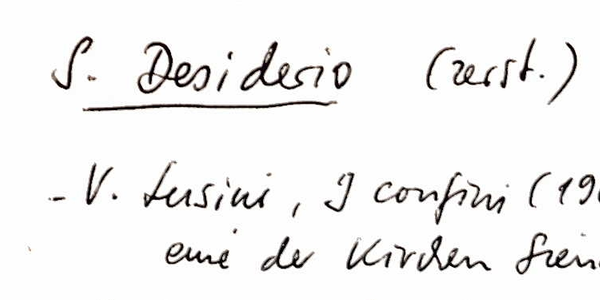 S. Desiderio (zerst.)
- V. Lusini, I confini (19
eine der Kirchen Sien